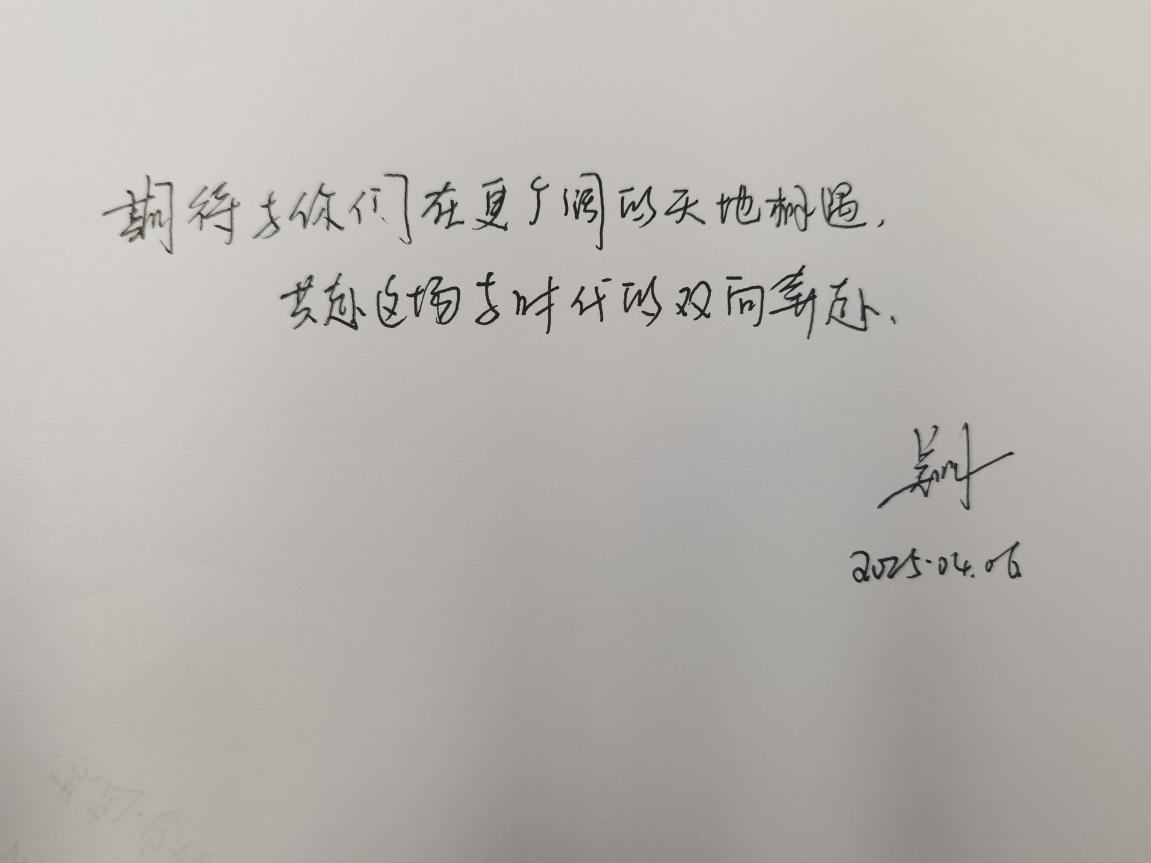 期待与你们在更广阔的天地相遇，
共赴这场与时代的双向奔赴.
2025.04.06